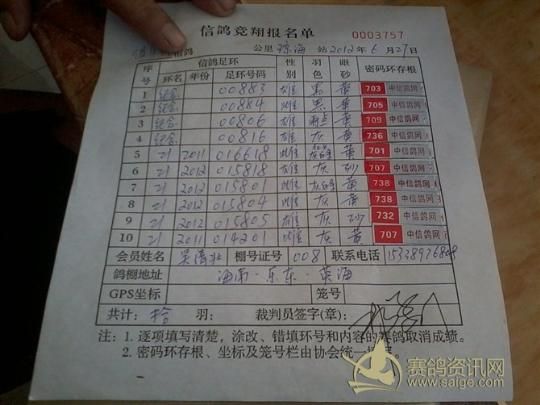 信鸽竞翔报名单
0003757
公里 琼海 站2012年6月27日
序号 信鸽足环 性别 羽色 眼砂 密码环存根
环名 年份 足环号码
1 00883 雄 黄 703 中信鸽网
2 00884 雄 黑 黄 705 中信鸽网
3 00806 雄 黄 709 中信鸽网
4 00816 雄 灰 黄 736 中信鸽网
5 21 2011 016618 雌 黄 701 中信鸽网
6 21 2012 015818 雌 灰 砂 707 中信鸽网
7 21 2012 015801 雌 黄 738 中信鸽网
8 21 2012 015804 雌 灰 黄 738 中信鸽网
9 21 2012 015805 雄 灰 砂 732 中信鸽网
10 21 2011 014201 雌 灰 黄 707 中信鸽网
会员姓名 棚号证号 008 联系电话
鸽棚地址 海南·乐东·莺海
GPS坐标 笼号
共计: 拾 羽: 裁判员签字(章):
注: 1. 逐项填写清楚，涂改、错填环号和内容的赛鸽取消成绩。
2. 密码环存根、坐标及笼号栏由协会统一填写
赛鸽资讯网
www.saige.com